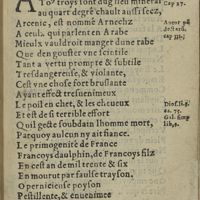 A Toy troys sont dug seul mineral
au quart degré chault aussi secz,
Arcenic, est nommé Arnechz
A ceulx qui parlent en Arabe
Mieulx vauldroit manger dune rabe
Que den gouster vne scintile
Tant a vertu prompte & subtile
Tresdangereuse, & violante,
Cest vne chose fort bruslante
Ayant effect tresuenimeux
Le poil en chet, & les cheueux
Et est de si terrible effort
Quil gecte soubdain lhomme mort,
Parquoy aulcun ny ait fiance.
Le primogenité de France
Francoys daulphin, de Francoys filz
En cest an de mil trente & six
En mourut par faulse trayson,
O pernicieuse poyson
Pestillente, & enuenimee
cap 27.